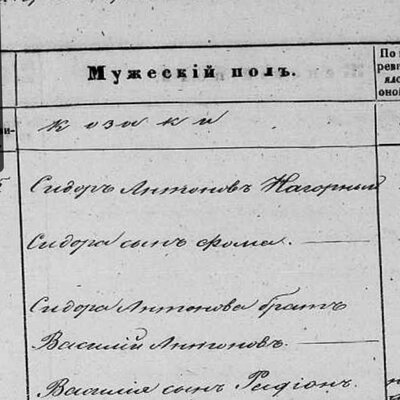 Мужескій полъ.
По
рев
яло
оной
козаки
Сидоръ Антоновъ Нагорный
Сидора сынъ Фома.
Сидора Антонова братъ
Василій Антоновъ.
Василія сынъ